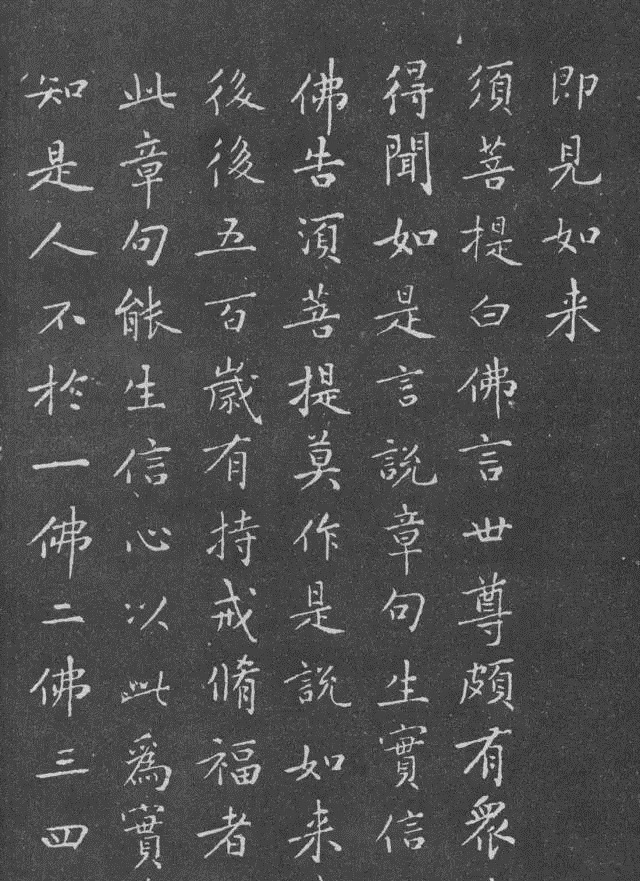 即見如来
須菩提白佛言世尊頗有衆
得聞如是言說章句生實信
佛告須菩提莫作是說如来
後後五百歲有持戒脩福者
此章句能生信心以此為實
知是人不於一佛二佛三四